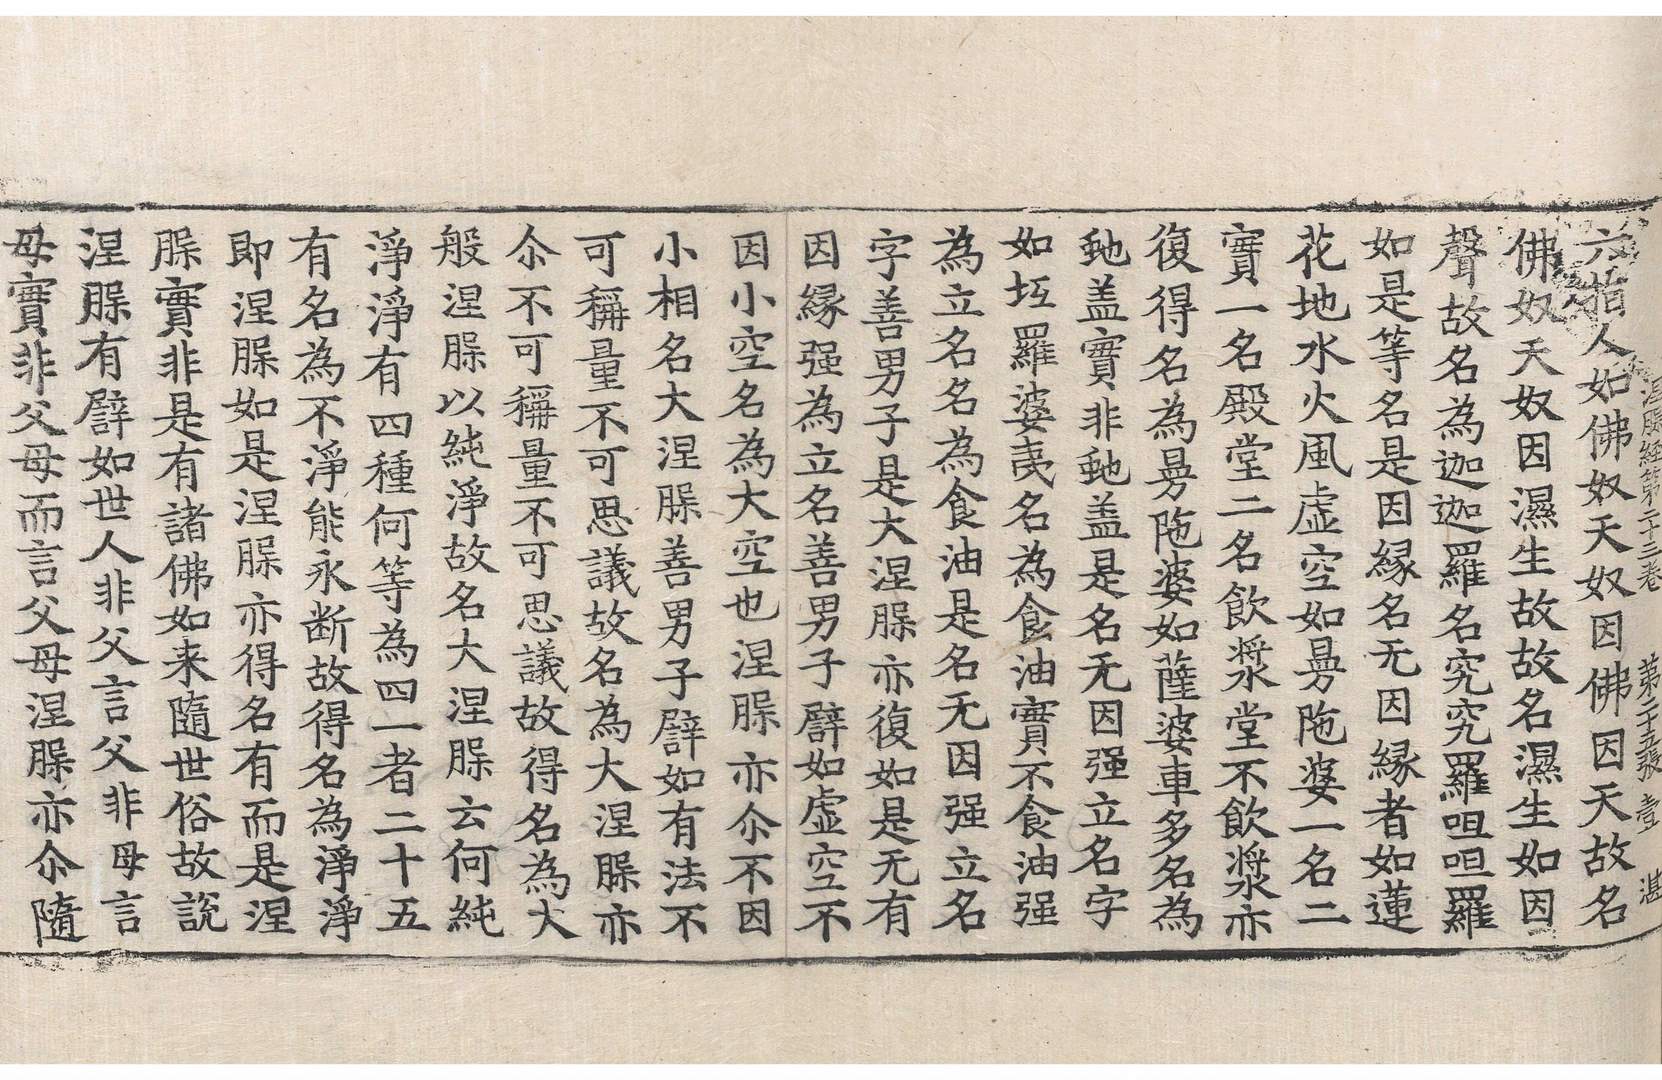 涅槃經第二十三卷 第二十五張 壹 湛
六指人如佛奴天奴因佛因天故名
佛奴天奴因濕生故故名濕生如因
聲故名為迦迦羅名究究羅呾呾羅
如是等名是因緣名无因緣者如蓮
花地水火風虛空如曼陁婆一名二
實一名殿堂二名飲漿堂不飲漿亦
復得名為曼陁婆如薩婆車多名為
虵盖實非虵盖是名无因强立名字
如坻羅婆夷名為食油實不食油强
為立名名為食油是名无因强立名
字善男子是大涅槃亦復如是无有
因緣强為立名善男子譬如虛空不
因小空名為大空也涅槃亦尒不因
小相名大涅槃善男子譬如有法不
可稱量不可思議故名為大涅槃亦
尒不可稱量不可思議故得名為大
般涅槃以純淨故名大涅槃云何純
淨淨有四種何等為四一者二十五
有名為不淨能永断故得名為淨淨
即涅槃如是涅槃亦得名有而是涅
槃實非是有諸佛如来隨世俗故說
涅槃有譬如世人非父言父非母言
母實非父母而言父母涅槃亦尒隨